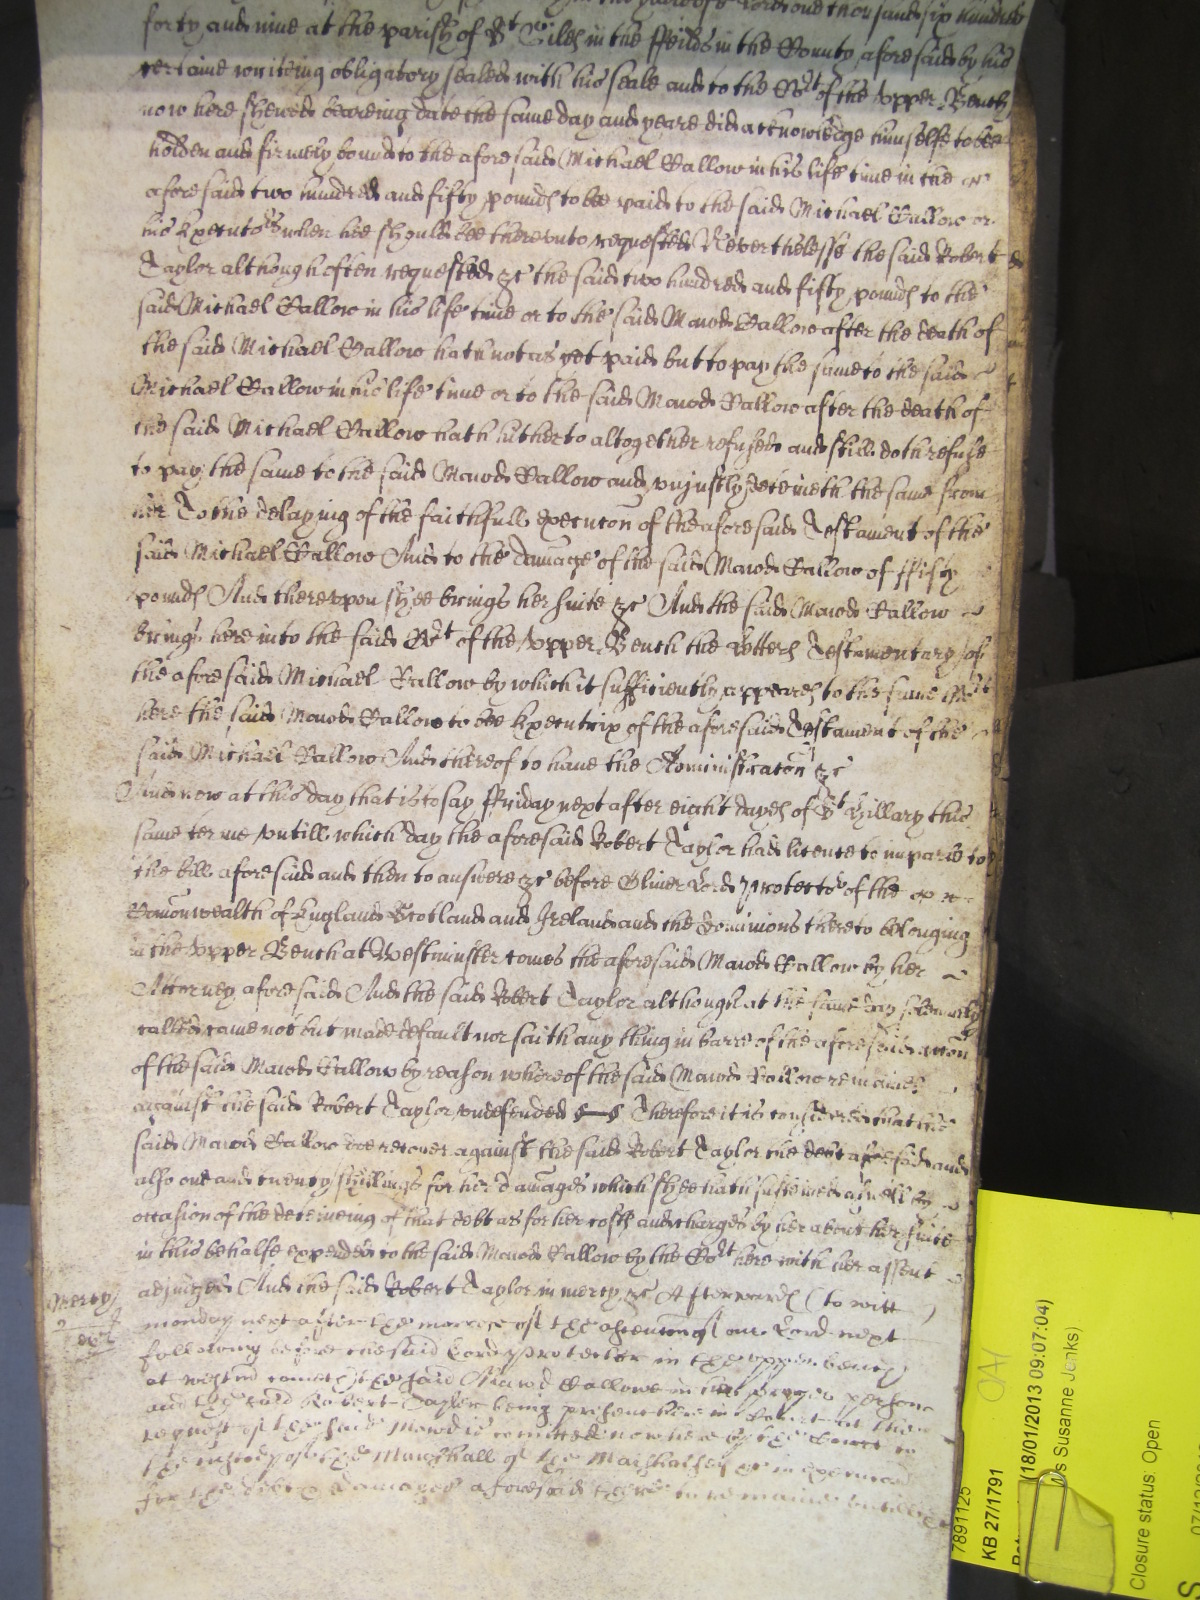 yeare of o Lord one thousand six hundred
forty and nine at the parish of St Giles in the ffeilds in the County aforesaid by his
certaine writeing obligatory sealed with his seale and to the Cort of the Upper Bench
now here shewed beareing date the same day and yeare did acknowledge himselfe to bee
holden and firmely bound to the aforesaid Michael Ballow in his life time in the
aforesaid two hundred and fifty pounds to bee paid to the said Michael Ballow or
his Executors when hee should bee therevnto requested Neverthelesse the said Robert
Taylor although often requested &c the said two hundred and fifty pounds to the
said Michael Ballow in his life time or to the said Mawd Ballow after the death of
the said Michael Ballow hath not as yet paid but to pay the same to the said
Michael Ballow in his life time or to the said Mawd Ballow after the death of
the said Michael Ballow hath hitherto altogether refused and still doth refuse
to pay the same to the said Mawd Ballow and vnjustly deteineth the same from
her To the delaying of the faithfull execucon of the aforesaid Testament of the
said Michael Ballow And to the damage of the said Mawd Ballow of ffifty
pounds And therevpon shee brings her suite &c And the said Mawd Ballow
brings here into the said Cort of the Upper Bench the Letters Testamentary of
the aforesaid Michael Ballow by which it sufficiently appeares to the same Cort
here the said Mawd Ballow to bee Executrix of the aforesaid Testament of the
said Michael Ballow And thereof to have the Administracon &c
And now at this day that is to say ffriday next after eight dayes of St Hillary this
same terme vntill which day the aforesaid Robert Taylor had licence to imparle to
the bill aforesaid and then to answere &c before Oliver Lord Protector of the
Comonwealth of England Scotland and Ireland and the dominions thereto belonging
in the Upper Bench at Westminster comes the aforesaid Mawd Ballow by her
Attorney aforesaid And the said Robert Taylor although at the same day solemnly
called came not but made default nor saith any thing in barre of the aforesaid accon
of the said Mawd Ballow by reason whereof the said Mawd Ballow remaines
against the said Robert Taylor vndefended Therefore it is considered that the
said Mawd Ballow doe recover against the said Robert Taylor the debt aforesaid and
also one and twenty shillings for her damages which shee hath susteined aswell by
occasion of the deteineing of that debt as for her costs and charges by her about her suite
in this behalfe expended to the said Mawd Ballow by the Cort here with her assent
adjudged And the said Robert Taylor in mercy &c Afterwards (to witt
Mercy
monday next after the morrow of the ascention of our Lord next
following before the said Lord protector in the upper bench
at westm cometh the said Mawd Ballowe in her proper person
and the said Robert Taylor being present here in Court at the
request of the said Mawd is comitted now here by the Court to
the custody of the Marshall of the Marshalsey &c in execucon
for the debt & damages aforesaid there to remaine untill &c
7891125
KB 27/1791
(18/01/2013 09:07:04)
s Susanne Jenks)
Closure status: Open